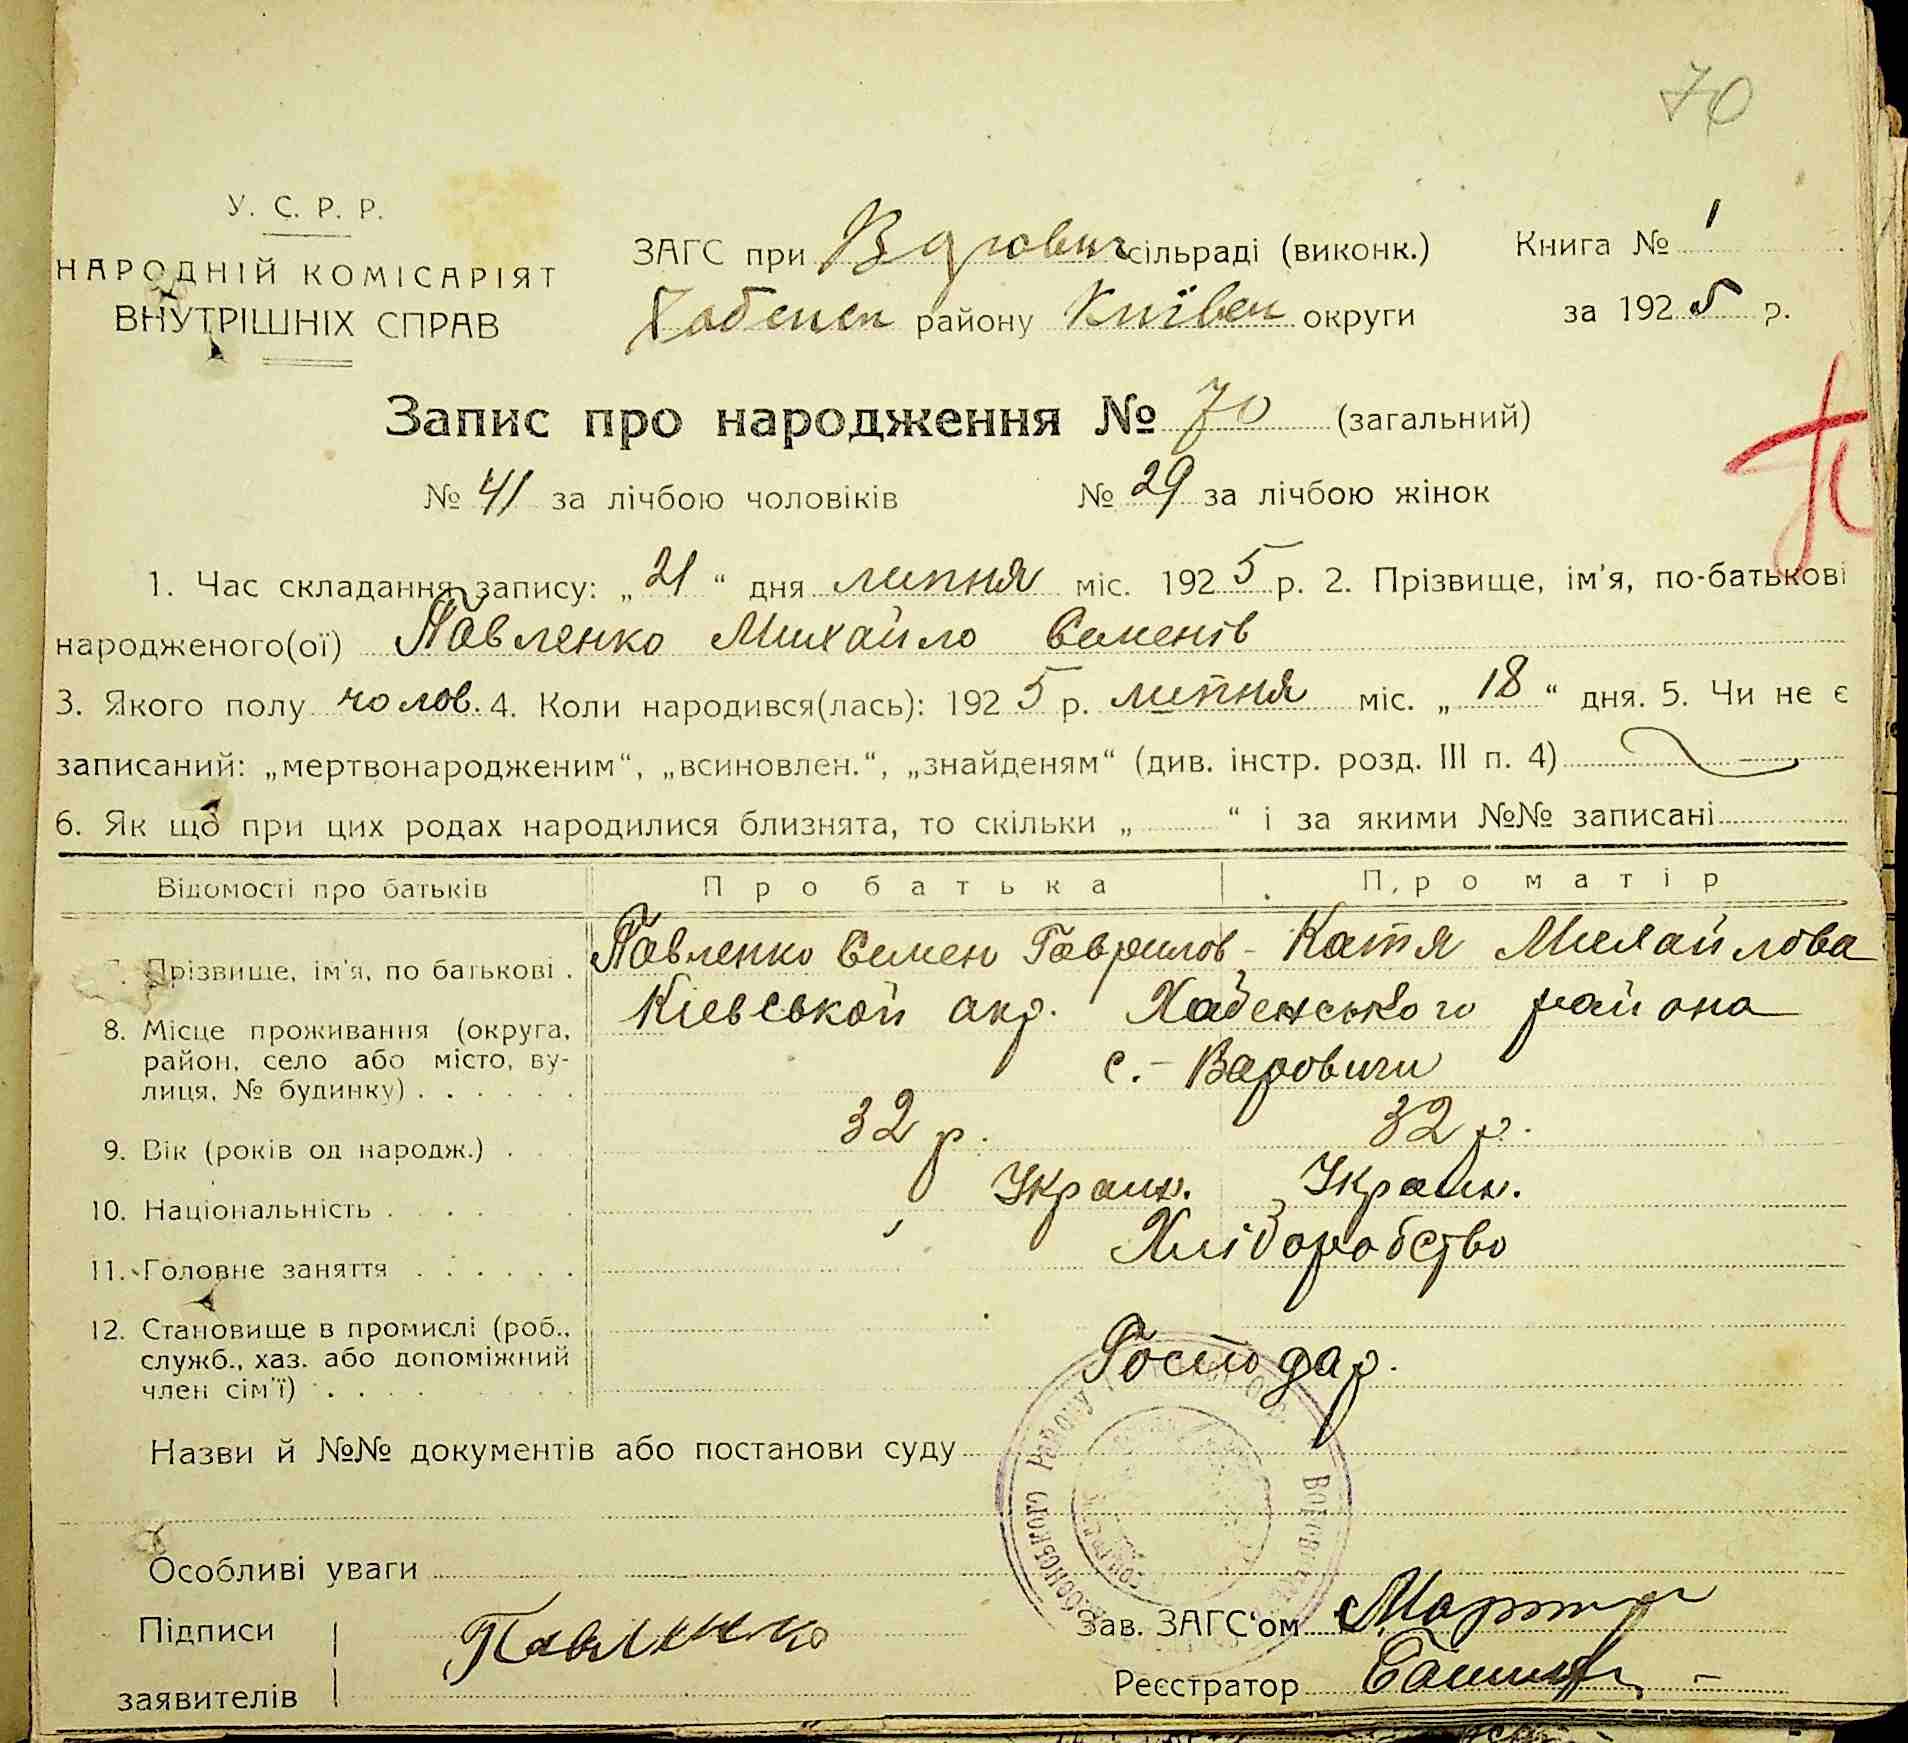 70
У. С. Р. Р.
НАРОДНІЙ КОМІСАРІЯТ
ВНУТРІШНІХ СПРАВ
ЗАГС при Варович сільраді (виконк.) Книга № 1
Хабенск району Київск округи за 1925 р.
Запис про народження № 70 (загальний)
№ 41 за лічбою чоловіків № 29 за лічбою жінок
1. Час складання запису: „21“ дня липня міс. 1925 р. 2. Прізвище, ім'я, по-батькові
народженого(ої) Павленко Михайло Семенів
3. Якого полу чолов. 4. Коли народився(лась): 1925 р. липня міс. „18“ дня. 5. Чи не є
записаний: „мертвонародженим“, „всиновлен.“, „знайденям“ (див. інстр. розд. III п. 4)
6. Як що при цих родах народилися близнята, то скільки „ “ і за якими №№ записані
Відомості про батьків Про батька Про матір
7. Прізвище, ім'я, по батькові . Павленко Семен Гаврилов - Катя Михайлова
8. Місце проживання (округа, район, село або місто, вулиця, № будинку) . . . . . . Кіевськой окр. Хабенського района
с. - Варовичи
9. Вік (років од народж.) . . . 32 р. 32 р.
10. Національність . . . . Украин. Украин.
11. Головне заняття . . . . . . Хліборобство
12. Становище в промислі (роб., служб., хаз. або допоміжний член сім'ї) . . . . Господар.
Назви й №№ документів або постанови суду
Особливі уваги
Підписи Павленко Зав. ЗАГС'ом
заявителів Реєстратор
району